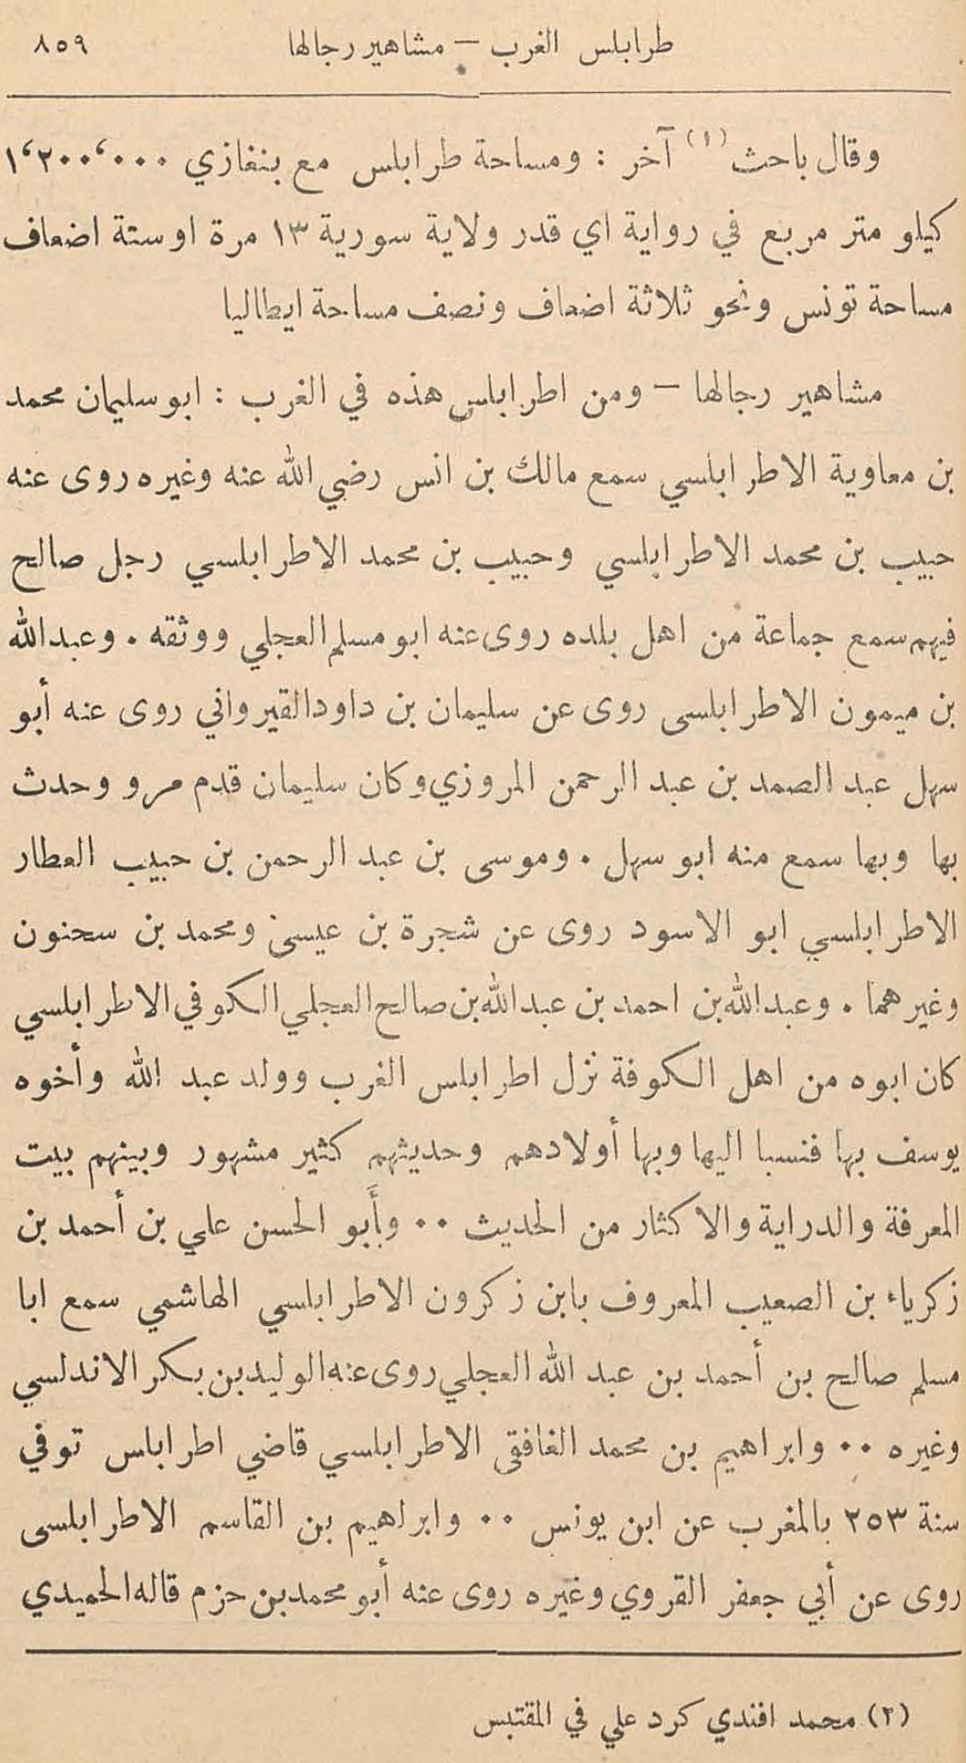 طرابلس الغرب — مشاهير رجالها ٨٥٩
وقال باحث (١) آخر : ومساحة طرابلس مع بنغازي ١٬٢٠٠٬٠٠٠
كيلو متر مربع في رواية اي قدر ولاية سورية ١٣ مرة او ستة اضعاف
مساحة تونس ونحو ثلاثة اضعاف ونصف مساحة ايطاليا
مشاهير رجالها — ومن اطرابلس هذه في الغرب : ابو سليمان محمد
بن معاوية الاطرابلسي سمع مالك بن انس رضي الله عنه وغيره روى عنه
حبيب بن محمد الاطرابلسي وحبيب بن محمد الاطرابلسي رجل صالح
فيهم سمع جماعة من اهل بلده روى عنه ابو مسلم العجلي ووثقه . وعبد الله
بن ميمون الاطرابلسى روى عن سليمان بن داود القيرواني روى عنه أبو
سهل عبد الصمد بن عبد الرحمن المروزي وكان سليمان قدم مرو وحدث
بها وبها سمع منه ابو سهل . وموسى بن عبد الرحمن بن حبيب العطار
الاطرابلسي ابو الاسود روى عن شجرة بن عيسى ومحمد بن سحنون
وغيرهما . وعبد الله بن احمد بن عبد الله بن صالح العجلي الكوفي الاطرابلسي
كان ابوه من اهل الكوفة نزل اطرابلس الغرب وولد عبد الله وأخوه
يوسف بها فنسبا اليها وبها أولادهم وحديثهم كثير مشهور وبيتهم بيت
المعرفة والدراية والاكثار من الحديث .. وأَبو الحسن علي بن أحمد بن
زكرياء بن الصعيب المعروف بابن زكرون الاطرابلسي الهاشمي سمع ابا
مسلم صالح بن أحمد بن عبد الله العجلي روى عنه الوليد بن بكر الاندلسي
وغيره .. وابراهيم بن محمد الغافقى الاطرابلسي قاضي اطرابلس توفي
سنة ٢٥٣ بالمغرب عن ابن يونس .. وابراهيم بن القاسم الاطرابلسى
روى عن أبي جعفر القروي وغيره روى عنه أبو محمد بن حزم قاله الحميدي
(٢) محمد افندي كرد علي في المقتبس